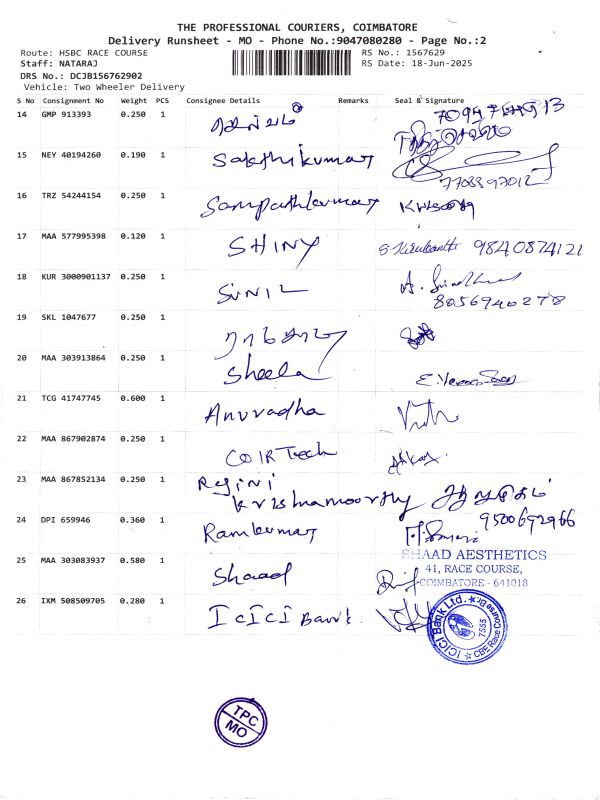 THE PROFESSIONAL COURIERS, COIMBATORE
Delivery Runsheet - MO - Phone No.:9047080280 - Page No.:2
Route: HSBC RACE COURSE RS No.: 1567629
Staff: NATARAJ RS Date: 18-Jun-2025
DRS No.: DCJB156762902
Vehicle: Two Wheeler Delivery
S No Consignment No Weight PCS Consignee Details Remarks Seal & Signature
14 GMP 913393 0.250 1
15 NEY 40194260 0.190 1 Sakthikumar
7708897012
16 TRZ 54244154 0.250 1 Sampathkumar
17 MAA 577995398 0.120 1 SHINY 9840874121
18 KUR 3000901137 0.250 1 SUNIL
8056940278
19 SKL 1047677 0.250 1
20 MAA 303913864 0.250 1 Sheela
21 TCG 41747745 0.600 1 Anuradha
22 MAA 867902874 0.250 1 COIR Tech
23 MAA 867852134 0.250 1 Rejini
Krishnamoorthy
24 DPI 659946 0.360 1 Ramkumar 9500692966
SHAAD AESTHETICS
25 MAA 303083937 0.580 1 Shaad 41, RACE COURSE,
COIMBATORE - 641018
26 IXM 508509705 0.280 1 ICICI Bank
ICICI Bank Ltd.
7555
TPC
MO